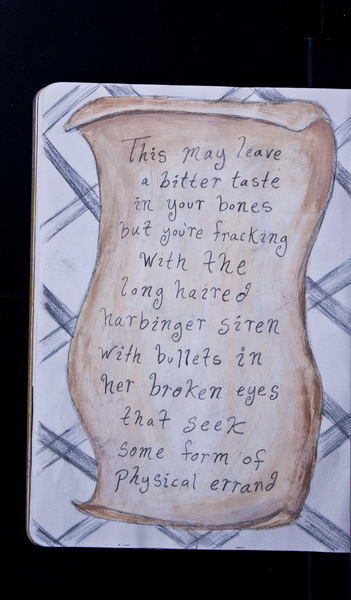 This may leave
a bitter taste
in your bones
but you're fracking
with the
long haired
harbinger siren
with bullets in
her broken eyes
that seek
some form of
physical errand